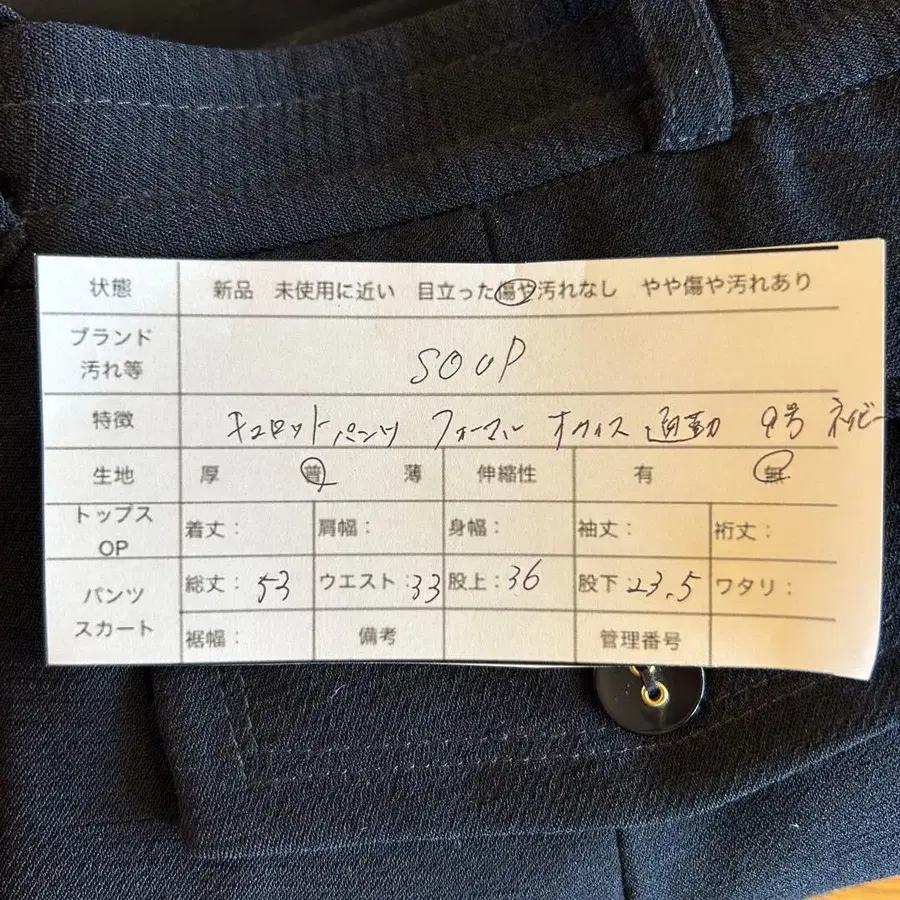 状態 新品 未使用に近い 目立った傷や汚れなし やや傷や汚れあり
ブランド
汚れ等 SOUP
特徴 キュロットパンツ フォーマル オフィス 通勤 9号 ネイビー
生地 厚 普 薄 伸縮性 有 無
トップス
OP 着丈: 肩幅: 身幅: 袖丈: 裄丈:
パンツ
スカート 総丈:53 ウエスト:33 股上:36 股下:23.5 ワタリ:
裾幅: 備考 管理番号